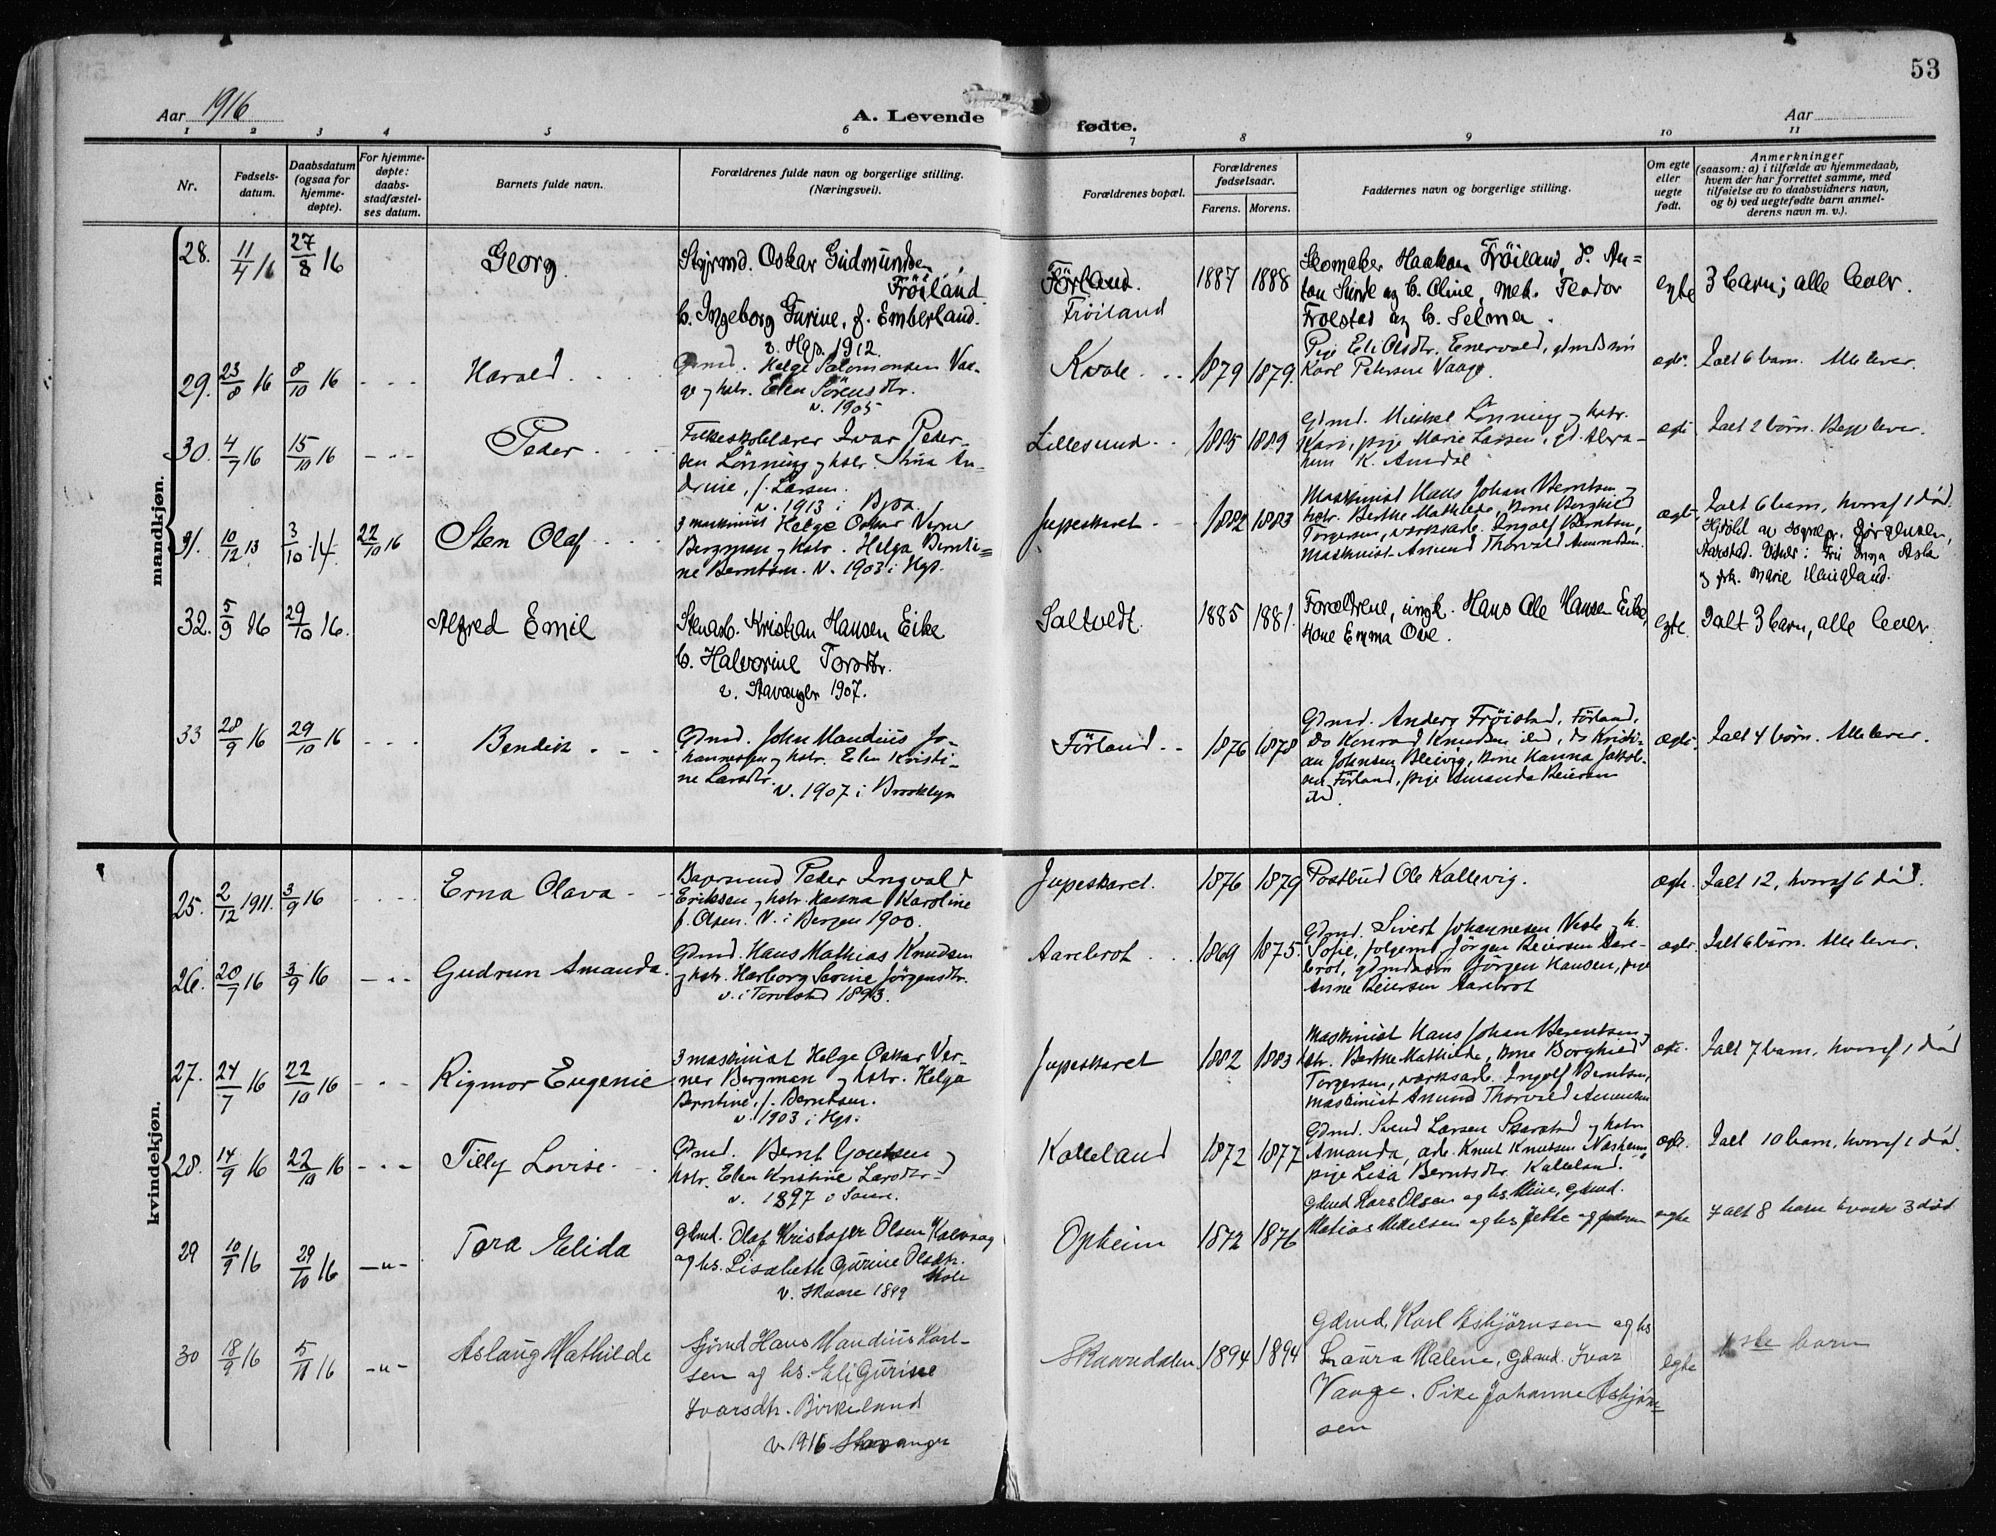 53
Aar 1916
A. Levende fødte.
Aar
1 2 3 4 5 6 7 8 9 10 11
Nr.
Fødsels-
datum.
Daabsdatum
(ogsaa for
hjemme-
døpte).
For hjemme-
døpte:
daabs-
stadfæstel-
ses datum.
Barnets fulde navn.
Forældrenes fulde navn og borgerlige stilling.
(Næringsvei).
Forældrenes bopæl.
Forældrenes
fødselsaar.
Farens. Morens.
Faddernes navn og borgerlige stilling.
Om egte
eller
uegte
født.
Anmerkninger
(saasom: a) i tilfælde av hjemmedaab,
hvem der har forrettet samme, med
tilføielse av to daabsvidners navn,
og b) ved uegtefødte barn anmel-
derens navn m. v.).
mandkjøn.
28. 11/4 16 27/8 16 Georg
Styrmd. Oskar Gudmundsen
Frøiland
b. Ingeborg Gurine, f. Emberland.
v. Hgs. 1912.
Førland.
Frøiland
1887 1888
Skomaker Haakon Frøiland, d. An-
ton Sunde og b. Oline, mek. Teodor
Frolstad og b. Selma.
egte 3 barn; alle lever.
29. 23/8 16 8/10 16 Harald
Gmd. Helge Salomonsen Vaa-
ge og hstr. Elen Sørensdtr.
v. 1905
Kvale 1879 1879.
Pige Eli Olsdtr. Enervald, gmdssøn
Karl Petersen Vaage.
egte. Ialt 6 barn. Alle lever.
30. 4/7 16 15/10 16 Peder
Folkeskolelærer Ivar Peder-
sen Lønning og hstr. Stina An-
drine, f. Larsen.
v. 1913 i
Lillesund 1885 1889
Gdmd. Mikkel Lønning og hstr.
Kari, pige Marie Larsen, gd. Abra-
ham K. Amdal
egte Ialt 2 børn. Begge lever.
31. 10/12 13 3/10 14 22/10 16 Sten Olaf
3 maskinist Helge Oskar Verner
Bergman og hstr. Helga Bernti-
ne Berntsen. v. 1903 i Hgs.
Jupeskaret 1882 1883
Maskinist Hans Johan Berntsen og
hstr. Berthe Mathilde, kone Borghild
Torgersen, værksarb. Ingolf Berntsen,
Maskinist Amund Thorvald Amundsen.
egte Ialt 6 barn, hvoraf 1 død.
Hjdøbt av sognepr. Jørgensen,
Aarstad. Vidner: Fru Inga Asla
og frk. Marie Haugland.
32. 5/9 16 29/10 16. Alfred Emil
Stenarb. Kristian Hansen Eike
b. Halvorine Torsdtr.
v. Stavanger 1907.
Saltvedt 1885 1881.
Forældrene, ungk. Hans Ole Hansen Eike,
Kone Emma Ove.
egte. Ialt 3 barn, alle lever.
33 28/9 16 29/10 16 Bendik
Gdmd. John Mandius Jo-
hannessen og hstr. Elen Kristi-
ne Larsdtr.
v. 1907 i Brooklyn
Førland 1876 1878
Gdmd. Anders Frøistad, Førland,
do Konrad Knudsen ibd, do Kristi-
an Johnsen Bleivig, kone Hanna Jakob-
sen Førland, pige Amanda Reiersen
ibd.
egte. Ialt 4 børn. Alle lever.
kvindekjøn.
25. 2/12 1911. 3/9 16 Erna Olava
Bagersvend Peder Ingvald
Eriksen og hstr. Hanna Karoline
f. Olsen. v. i Bergen 1900.
Jupeskaret. 1876 1879
Postbud Ole Kallevig.
egte. Ialt 12, hvoraf 6 død.
26. 20/7 16 3/9 16 Gudrun Amanda
Gdmd. Hans Mathias Knudsen
og hstr. Harborg Serine Jørgensdtr.
v. i Torvestad 1893.
Aarebrot 1869 1875.
Gdmd. Sivert Johannesen Veste og h.
Sofie, folgemd. Jørgen Reiersen Aare-
brot, gdmdssøn Jørgen Hansen, pige
Anne Reiersen Aarebrot
egte. Ialt 6 børn. Alle lever.
27. 24/7 16 22/10 16 Rigmor Eugenie
3 maskinist Helge Oskar Ver-
ner Bergman og hstr. Helga
Berntine, f. Berntsen.
v. 1903 i Hgs.
Jupeskaret 1882 1883
Maskinist Hans Johan Berentsen og
hstr. Berthe Mathilde, kone Borghild
Torgersen, værksarb. Ingolf Berntsen,
maskinist Amund Thorvald Amundsen
egte. Ialt 7 barn, hvoraf 1 død
28. 14/9 16 22/10 16 Tilly Lovise
Gmd. Bernt Goutsen og
hstr. Elen Kristine Larsdtr.
v. 1897 i
Kalleland 1872 1877
Gdmd. Svend Larsen Skarstad og hstr
Amanda, arb. Knut Knutsen Næsheim,
pige Lisa Berntsdtr. Kalleland.
egte. Ialt 10 barn, hvoraf 1 død
29 10/9 16 29/10 16 Tora Elida
Gdmd. Olaf Kristofer Olsen Kalvaag
og hs. Lisabeth Gurine Olsdtr.
v. Skaare 1899
Opheim 1872 1876
Gdmd Lars Olsen og hs. Mine, Gdmd.
Matias Mikkelsen og hs Jette og
egte Ialt 8 barn hvorav 3 død
30 18/9 16 5/11 16 Aslaug Mathilde
Sjømd Hans Mandius Karl-
sen og hs. Eli Gurine
Ivarsdtr. Birkeland
v. 1916 Stavanger
Skaaredalen 1894 1894
Gdmd. Karl Asbjørnsen og hs
Laura Malene, Gdmd. Ivar
Vaage. Pike Johanne Asbjørn-
sen
egte 1ste barn